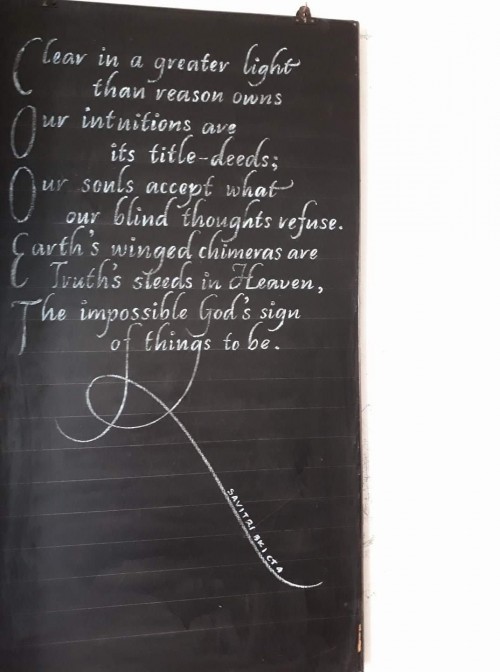 Clear in a greater light
than reason owns
Our intuitions are
its title-deeds;
Our souls accept what
our blind thoughts refuse.
Earth's winged chimeras are
Truth's steeds in Heaven,
The impossible God's sign
of things to be.
SAVITRI BK I CT 4